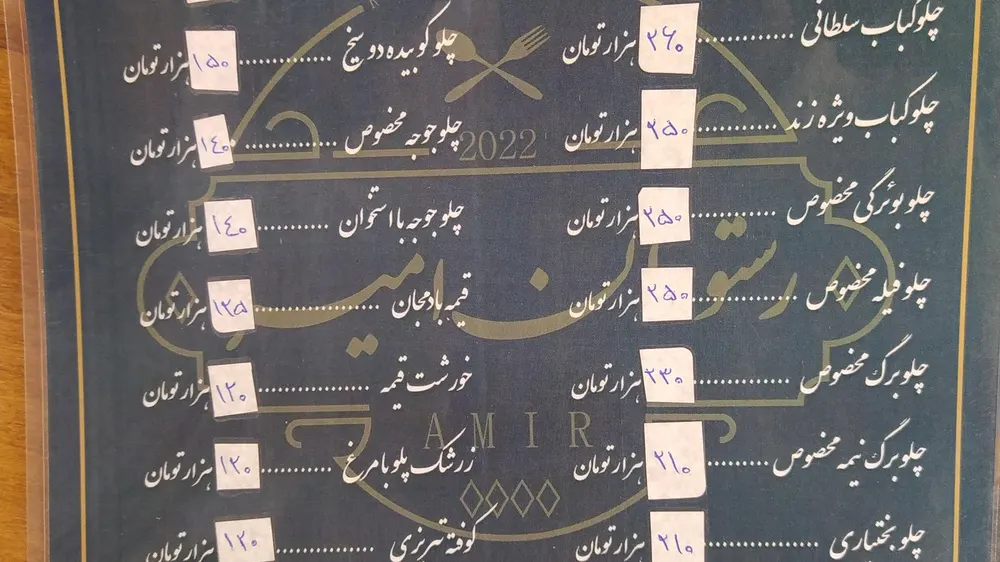 چلوکباب سلطانی ............ ۲۶۰ هزار تومان
چلوکباب ویژه زند ............ ۲۵۰ هزار تومان
چلو بوئرگی مخصوص ............ ۲۵۰ هزار تومان
چلو فیله مخصوص ............ ۲۵۰ هزار تومان
چلو برگ مخصوص ............ ۲۳۰ هزار تومان
چلو برگ نیمه مخصوص ............ ۲۱۰ هزار تومان
چلو بختیاری ............ ۲۱۰ هزار تومان
چلو کوبیده دو سیخ ............ ۱۵۰ هزار تومان
چلو جوجه مخصوص ............ ۱۴۰ هزار تومان
چلو جوجه با استخوان ............ ۱۴۰ هزار تومان
قیمه بادمجان ............ ۱۲۵ هزار تومان
خورشت قیمه ............ ۱۲۰ هزار تومان
زرشک پلو با مرغ ............ ۱۲۰ هزار تومان
کوفته تبریزی ............ ۱۲۰ هزار تومان
2022
رستوران امیر
AMIR